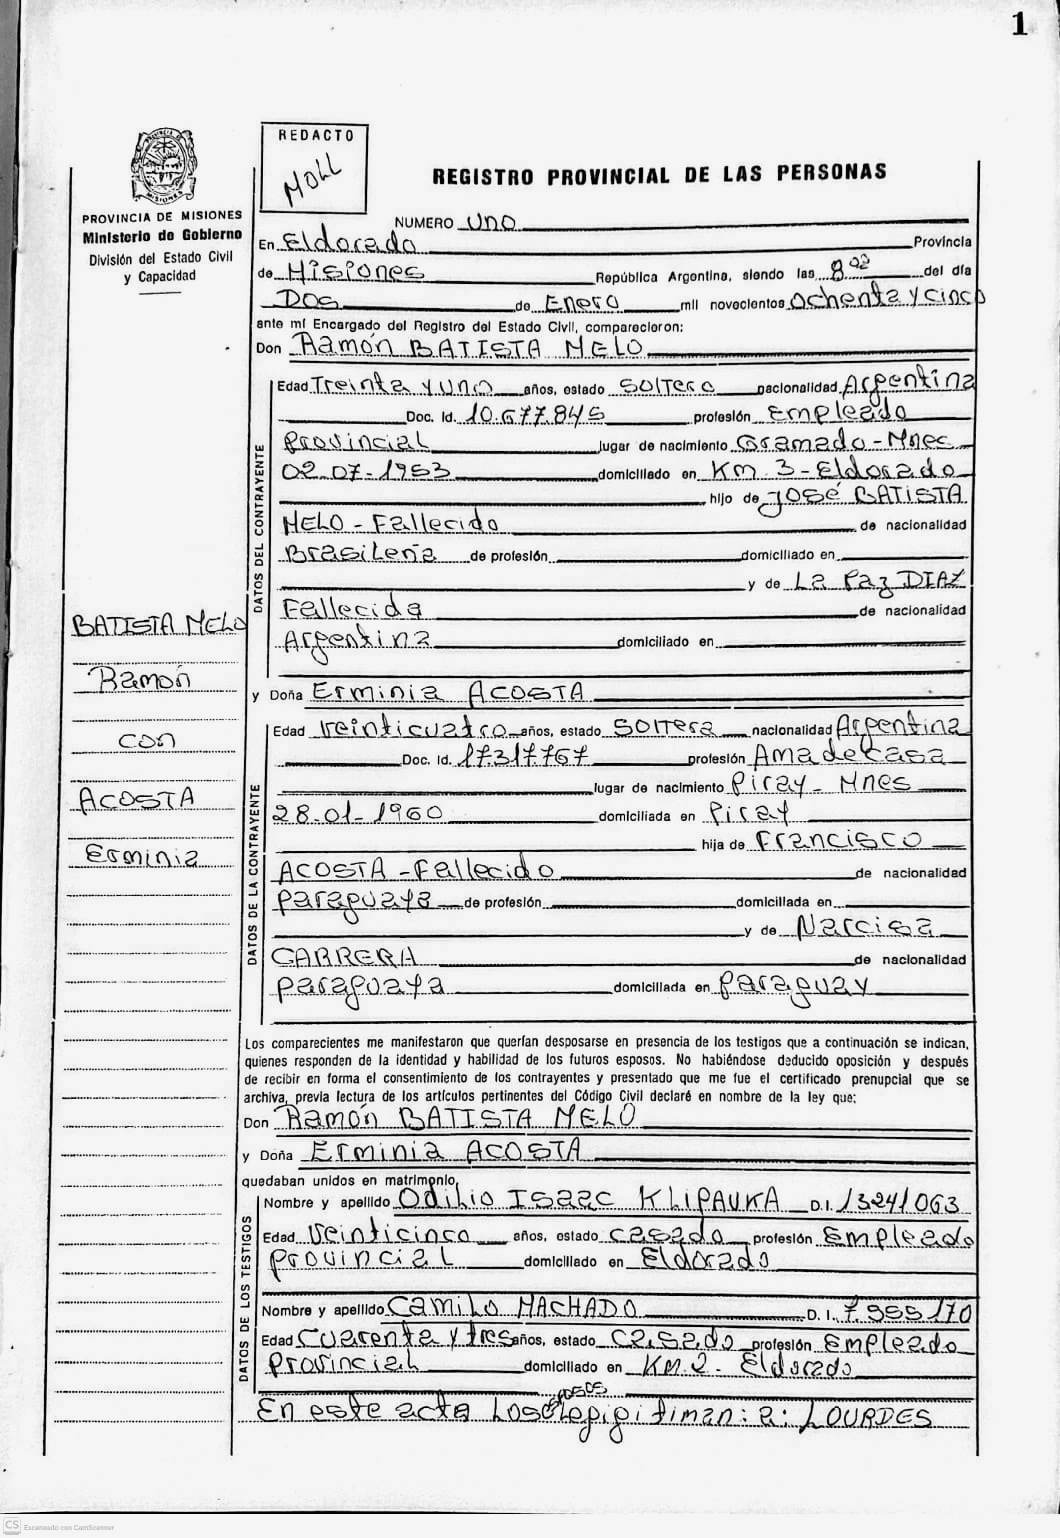 1
REDACTO
MOLL
REGISTRO PROVINCIAL DE LAS PERSONAS
PROVINCIA DE MISIONES
Ministerio de Gobierno
División del Estado Civil
y Capacidad
NUMERO UNO
En Eldorado Provincia
de Misiones República Argentina, siendo las 8,02 del día
DOS de Enero mil novecientos Ochenta y cinco
ante mí Encargado del Registro del Estado Civil, comparecieron:
Don Ramón BATISTA MELO
DATOS DEL CONTRAYENTE
Edad Treinta y uno años, estado Soltero nacionalidad Argentina
Doc. Id. 10.677.845 profesión Empleado
Provincial lugar de nacimiento Gramado - Mnes
02.07-1953 domiciliado en Km. 3-Eldorado
hijo de José BATISTA
MELO - Fallecido de nacionalidad
Brasileña de profesión domiciliado en
y de La Paz DIAZ
Fallecida de nacionalidad
Argentina domiciliado en
BATISTA MELO
Ramón
con
ACOSTA
Erminia
y Doña Erminia ACOSTA
DATOS DE LA CONTRAYENTE
Edad Veinticuatro años, estado Soltera nacionalidad Argentina
Doc. Id. 17317767 profesión Ama de casa
lugar de nacimiento Piray - Mnes
28-01-1960 domiciliada en Piray
hija de Francisco
ACOSTA - Fallecido de nacionalidad
paraguaya de profesión domiciliada en
y de Narcisa
CABRERA de nacionalidad
paraguaya domiciliada en paraguay
Los comparecientes me manifestaron que querían desposarse en presencia de los testigos que a continuación se indican,
quienes responden de la identidad y habilidad de los futuros esposos. No habiéndose deducido oposición y después
de recibir en forma el consentimiento de los contrayentes y presentado que me fue el certificado prenupcial que se
archiva, previa lectura de los artículos pertinentes del Código Civil declaré en nombre de la ley que:
Don Ramón BATISTA MELO
y Doña Erminia ACOSTA
quedaban unidos en matrimonio.
DATOS DE LOS TESTIGOS
Nombre y apellido Odilio Isaac KLIPAUKA D.I. 13241063
Edad Veinticinco años, estado casado profesión Empleado
provincial domiciliado en Eldorado
Nombre y apellido Camilo MACHADO D. I. 7.999170
Edad Cuarenta y tres años, estado casado profesión Empleado
Provincial domiciliado en Km. 2 - Eldorado
En este acto Los esposos Legitiman: a: LOURDES
CS Escaneado con CamScanner